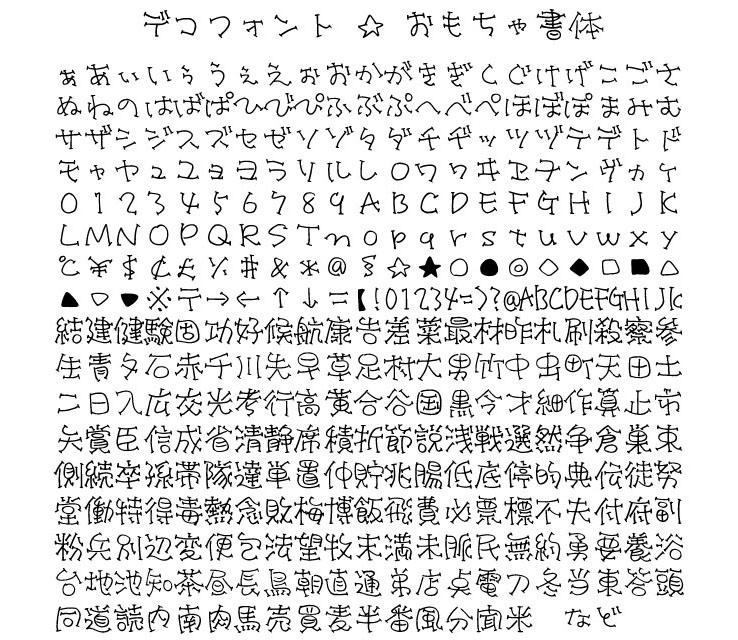 デコフォント ☆ おもちゃ書体
ぁあぃいぅうぇえぉおかがきぎくぐけげこごさ
ぬねのはばぱひびぴふぶぷへべぺほぼぽまみむ
サザシジスズセゼソゾタダチヂッツヅテデトド
モャヤュユョヨラリルレロワヮヰヱヲンヴヵヶ
0123456789ABCDEFGHIJK
LMNOPQRSTnopqrstuvwxy
℃¥$¢£%#&*@§☆★○●◎◇◆□■△
▲▽▼※〒→←↑↓〓【!01234=>?@ABCDEFGHIJK
結建健験固功好候航康告差菜最材昨札刷殺察参
生青夕石赤千川先早草足村大男竹中虫町天田土
二日入広交光考行高黄合谷国黒今才細作算止市
失賞臣信成省清静席積折節説浅戦選然争倉巣束
側続卒孫帯隊達単置仲貯兆腸低底停的典伝徒努
堂働特得毒熱念敗梅博飯飛費必票標不夫付府副
粉兵別辺変便包法望牧末満未脈民無約勇要養浴
台地池知茶昼長鳥朝直通弟店点電刀冬当東答頭
同道読内南肉馬売買麦半番風分聞米 など